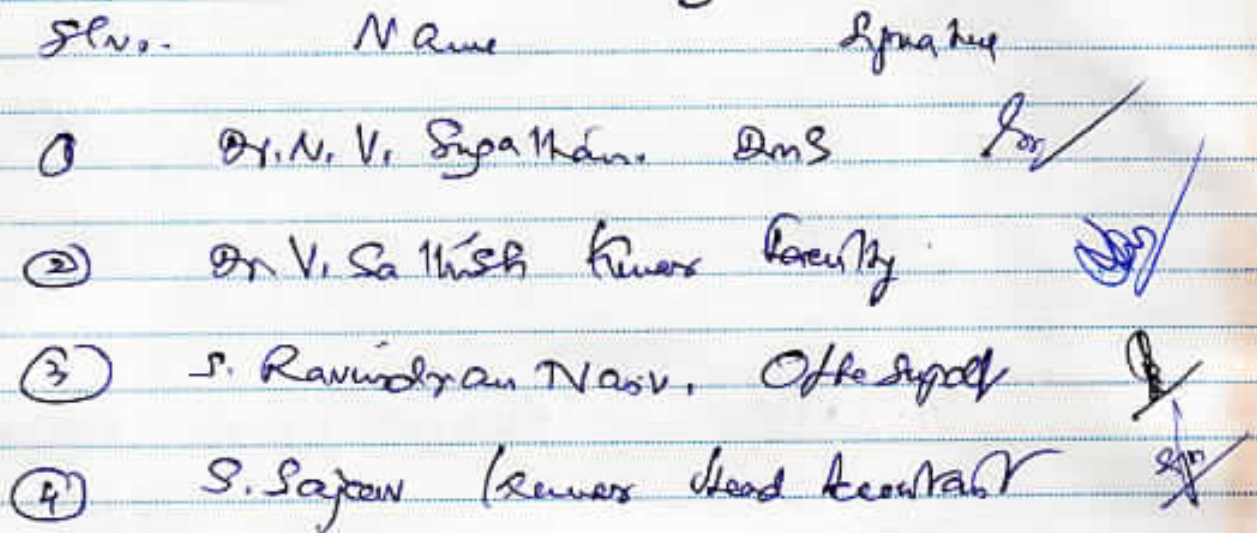 Sl No. Name Signature
1 Dr. N. V. Sugathan. DMS
2 Dr V. Sathish Kumar Faculty
3 S. Ravindran Nair. Office Supdt
4 S. Sajeev Kumar Head Accountant